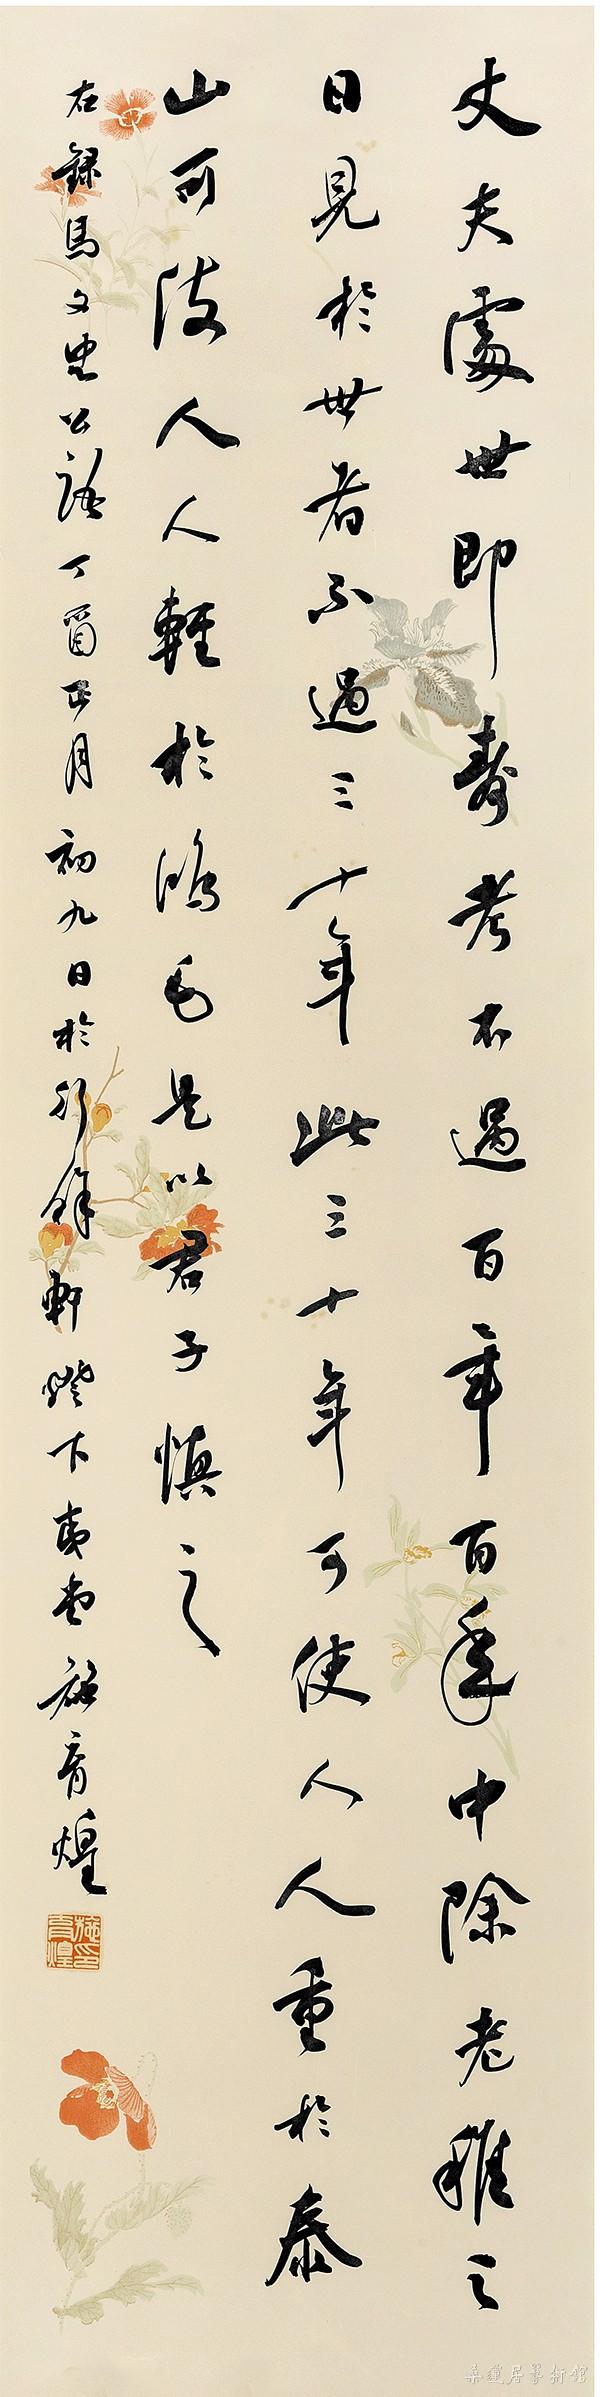 丈夫處世即壽考不過百年百年中除老稚之
日見於世者不過三十年此三十年可使人人重於泰
山可使人人輕於鴻毛是以君子慎之
右錄馬文忠公語丁酉正月初九日於行餘軒燈下施育煌
施育煌印
桑蓮居藝術館